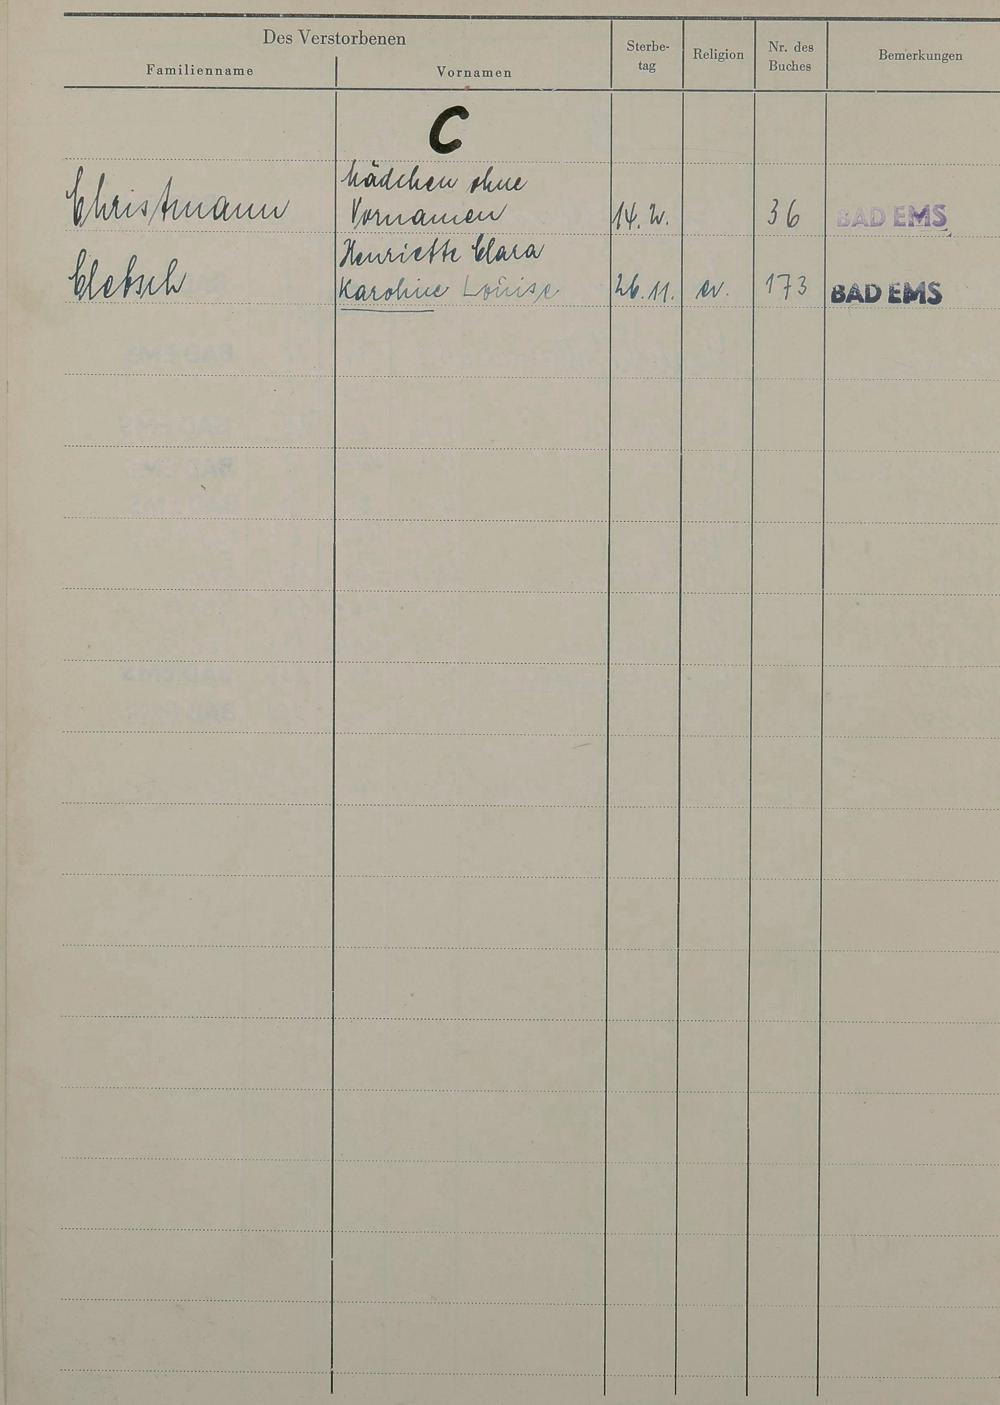 Des Verstorbenen
Familienname Vornamen Sterbe-tag Religion Nr. des Buches Bemerkungen
C
Mädchen ohne
Christmann Vornamen 14. 2. 36 BAD EMS
Henriette Clara
Clebsch Karoline Louise 26. 11. ev. 173 BAD EMS